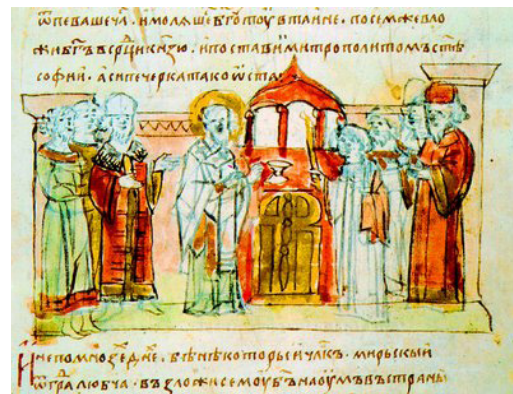 ѿпеваше ча҃. и моляше б҃го тоу в таине. посем же вло
жи б҃гъ въ ср҃ци кн҃зю. и постави и митрополитомъ ст҃ѣ
софии. а си печерка тако ѿста
И не по мнозе дн҃е. бѣ нѣкоторыи чл҃къ. мирьскыи
ѿ гра҃ любча. възложи семоу б҃ъ на оумъ въ страны